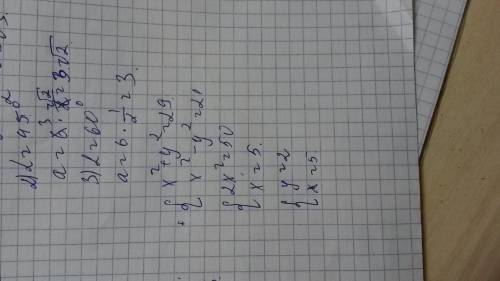 2) α = 45°
a = 6 · √2/2 = 3√2.
3) α = 60°
a = 6 · 1/2 = 3.
+ { x² + y² = 29
x² − y² = 21
{ 2x² = 50
x = 5.
{ y = 2
x = 5.